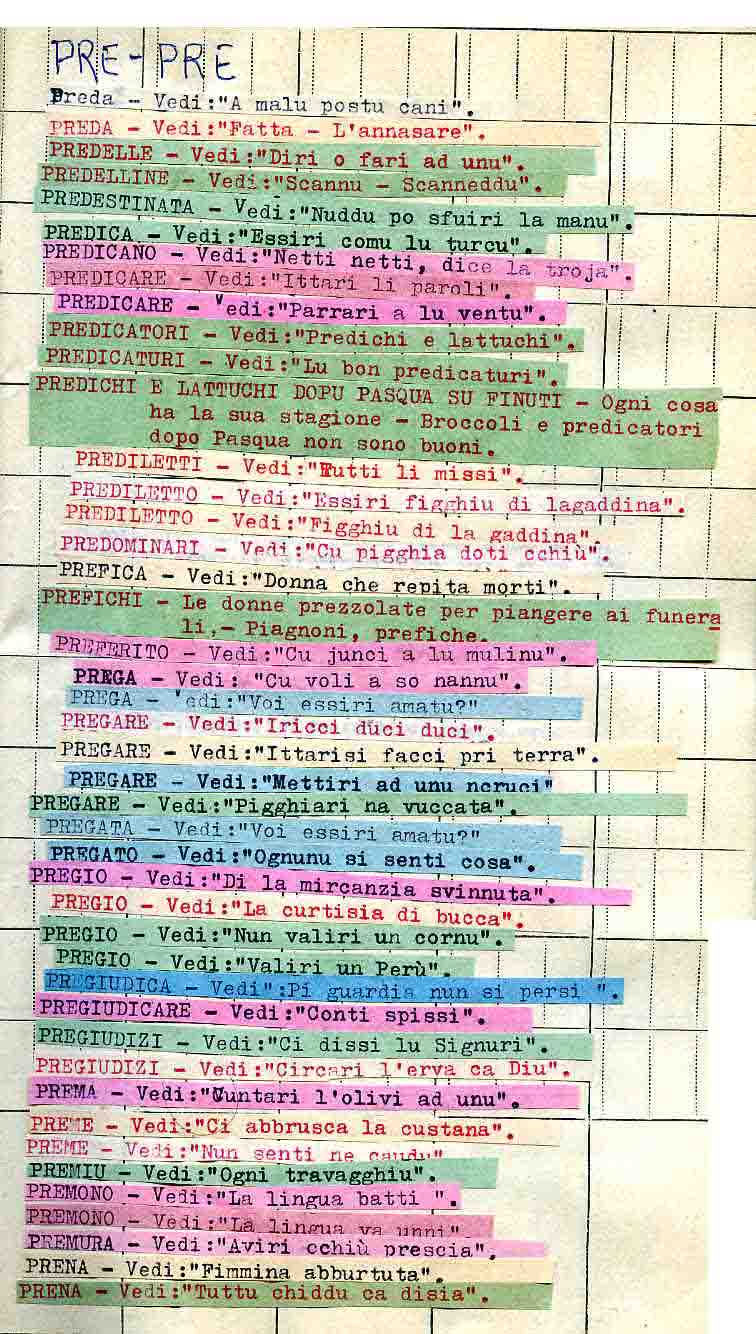 PRE-PRE
Preda - Vedi:"A malu postu cani".
PREDA - Vedi:"Fatta - L'annasare".
PREDELLE - Vedi:"Diri o fari ad unu".
PREDELLINE - Vedi:"Scannu - Scanneddu".
PREDESTINATA - Vedi:"Nuddu po sfuiri la manu".
PREDICA - Vedi:"Essiri comu lu turcu".
PREDICANO - Vedi:"Netti netti, dice la troja".
PREDICARE - Vedi:"Ittari li paroli".
PREDICARE - Vedi:"Parrari a lu ventu".
PREDICATORI - Vedi:"Predichi e lattuchi".
PREDICATURI - Vedi:"Lu bon predicaturi".
PREDICHI E LATTUCHI DOPU PASQUA SU FINUTI - Ogni cosa
ha la sua stagione - Broccoli e predicatori
dopo Pasqua non sono buoni.
PREDILETTI - Vedi:"Tutti li missi".
PREDILETTO - Vedi:"Essiri figghiu di lagaddina".
PREDILETTO - Vedi:"Figghiu di la gaddina".
PREDOMINARI - Vedi:"Cu pigghia doti cchiù".
PREFICA - Vedi:"Donna che repita morti".
PREFICHI - Le donne prezzolate per piangere ai funera
li,- Piagnoni, prefiche.
PREFERITO - Vedi:"Cu junci a lu mulinu".
PREGA - Vedi: "Cu voli a so nannu".
PREGA - Vedi:"Voi essiri amatu?"
PREGARE - Vedi:"Iricci duci duci".
PREGARE - Vedi:"Ittarisi facci pri terra".
PREGARE - Vedi:"Mettiri ad unu ncruci"
PREGARE - Vedi:"Pigghiari na vuccata".
PREGATA - Vedi:"Voi essiri amatu?"
PREGATO - Vedi:"Ognunu si senti cosa".
PREGIO - Vedi:"Di la mircanzia svinnuta".
PREGIO - Vedi:"La curtisia di bucca".
PREGIO - Vedi:"Nun valiri un cornu".
PREGIO - Vedi:"Valiri un Perù".
PREGIUDICA - Vedi":Pi guardia nun si persi ".
PREGIUDICARE - Vedi:"Conti spissi".
PREGIUDIZI - Vedi:"Ci dissi lu Signuri".
PREGIUDIZI - Vedi:"Circari l'erva ca Diu".
PREMA - Vedi:"Cuntari l'olivi ad unu".
PREME - Vedi:"Ci abbrusca la custana".
PREME - Vedi:"Nun senti ne caudu"
PREMIU - Vedi:"Ogni travagghiu".
PREMONO - Vedi:"La lingua batti ".
PREMONO - Vedi:"La lingua va unni".
PREMURA - Vedi:"Aviri cchiù prescia".
PRENA - Vedi:"Fimmina abburtuta".
PRENA - Vedi:"Tuttu chiddu ca disia".